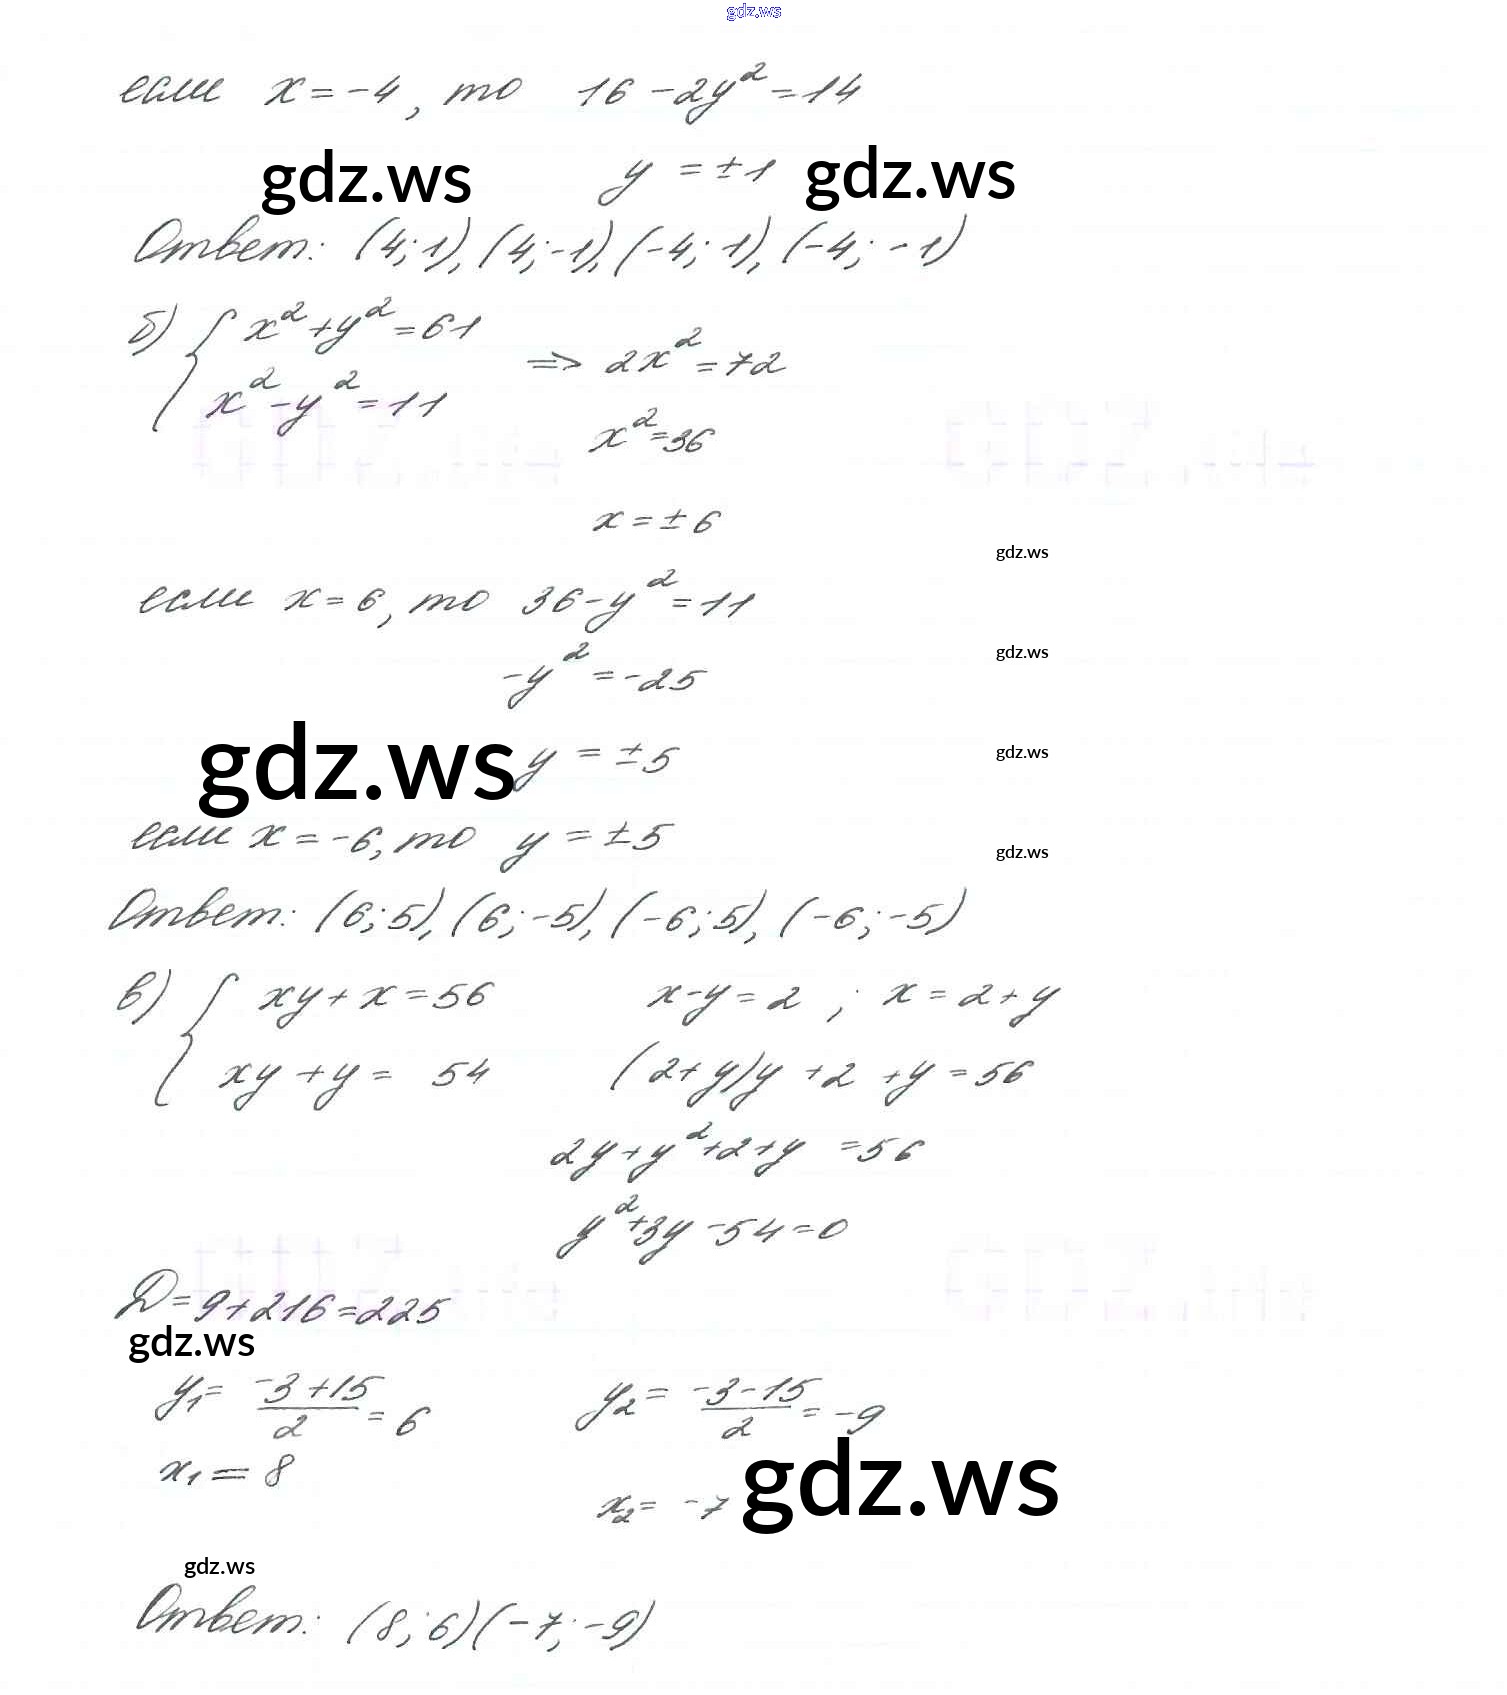 gdz.ws
если x = -4, то 16 - 2y² = 14
gdz.ws y = ±1 gdz.ws
Ответ: (4; 1), (4; -1), (-4; 1), (-4; -1)
б) { x² + y² = 61
x² - y² = 11 => 2x² = 72
x² = 36
x = ±6
gdz.ws
если x = 6, то 36 - y² = 11
gdz.ws
-y² = -25
gdz.ws y = ±5 gdz.ws
если x = -6, то y = ±5
gdz.ws
Ответ: (6; 5), (6; -5), (-6; 5), (-6; -5)
в) { xy + x = 56 x - y = 2 ; x = 2 + y
xy + y = 54 (2 + y)y + 2 + y = 56
2y + y² + 2 + y = 56
y² + 3y - 54 = 0
D = 9 + 216 = 225
gdz.ws
y₁ = (-3 + 15)/2 = 6 y₂ = (-3 - 15)/2 = -9
x₁ = 8
x₂ = -7 gdz.ws
gdz.ws
Ответ: (8; 6) (-7; -9)